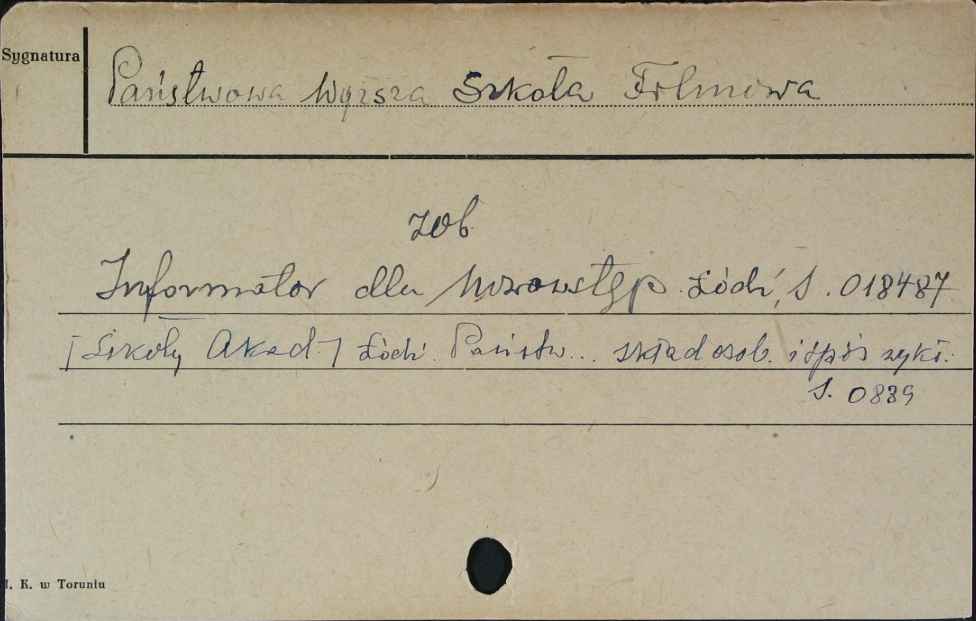 Sygnatura
Państwowa Wyższa Szkoła Filmowa
zob
Informator dla nowowstęp. Łódź, S. 018487
[Szkoły Akad.] Łódź. Państw... skład osob. i spis wykł.
S. 0839
I. K. w Toruniu